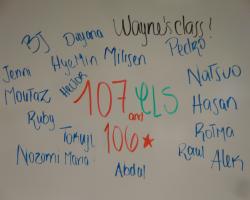 Wayne's class!
BJ Dayana
Pedro
Hyemin Milisen
Jenni
Natsuo
Moutaz Hector
107 ELS
Hasan
Ruby
and
106
Rotma
Tokuji
Raul Alek
Nozomi Maria
Abdul